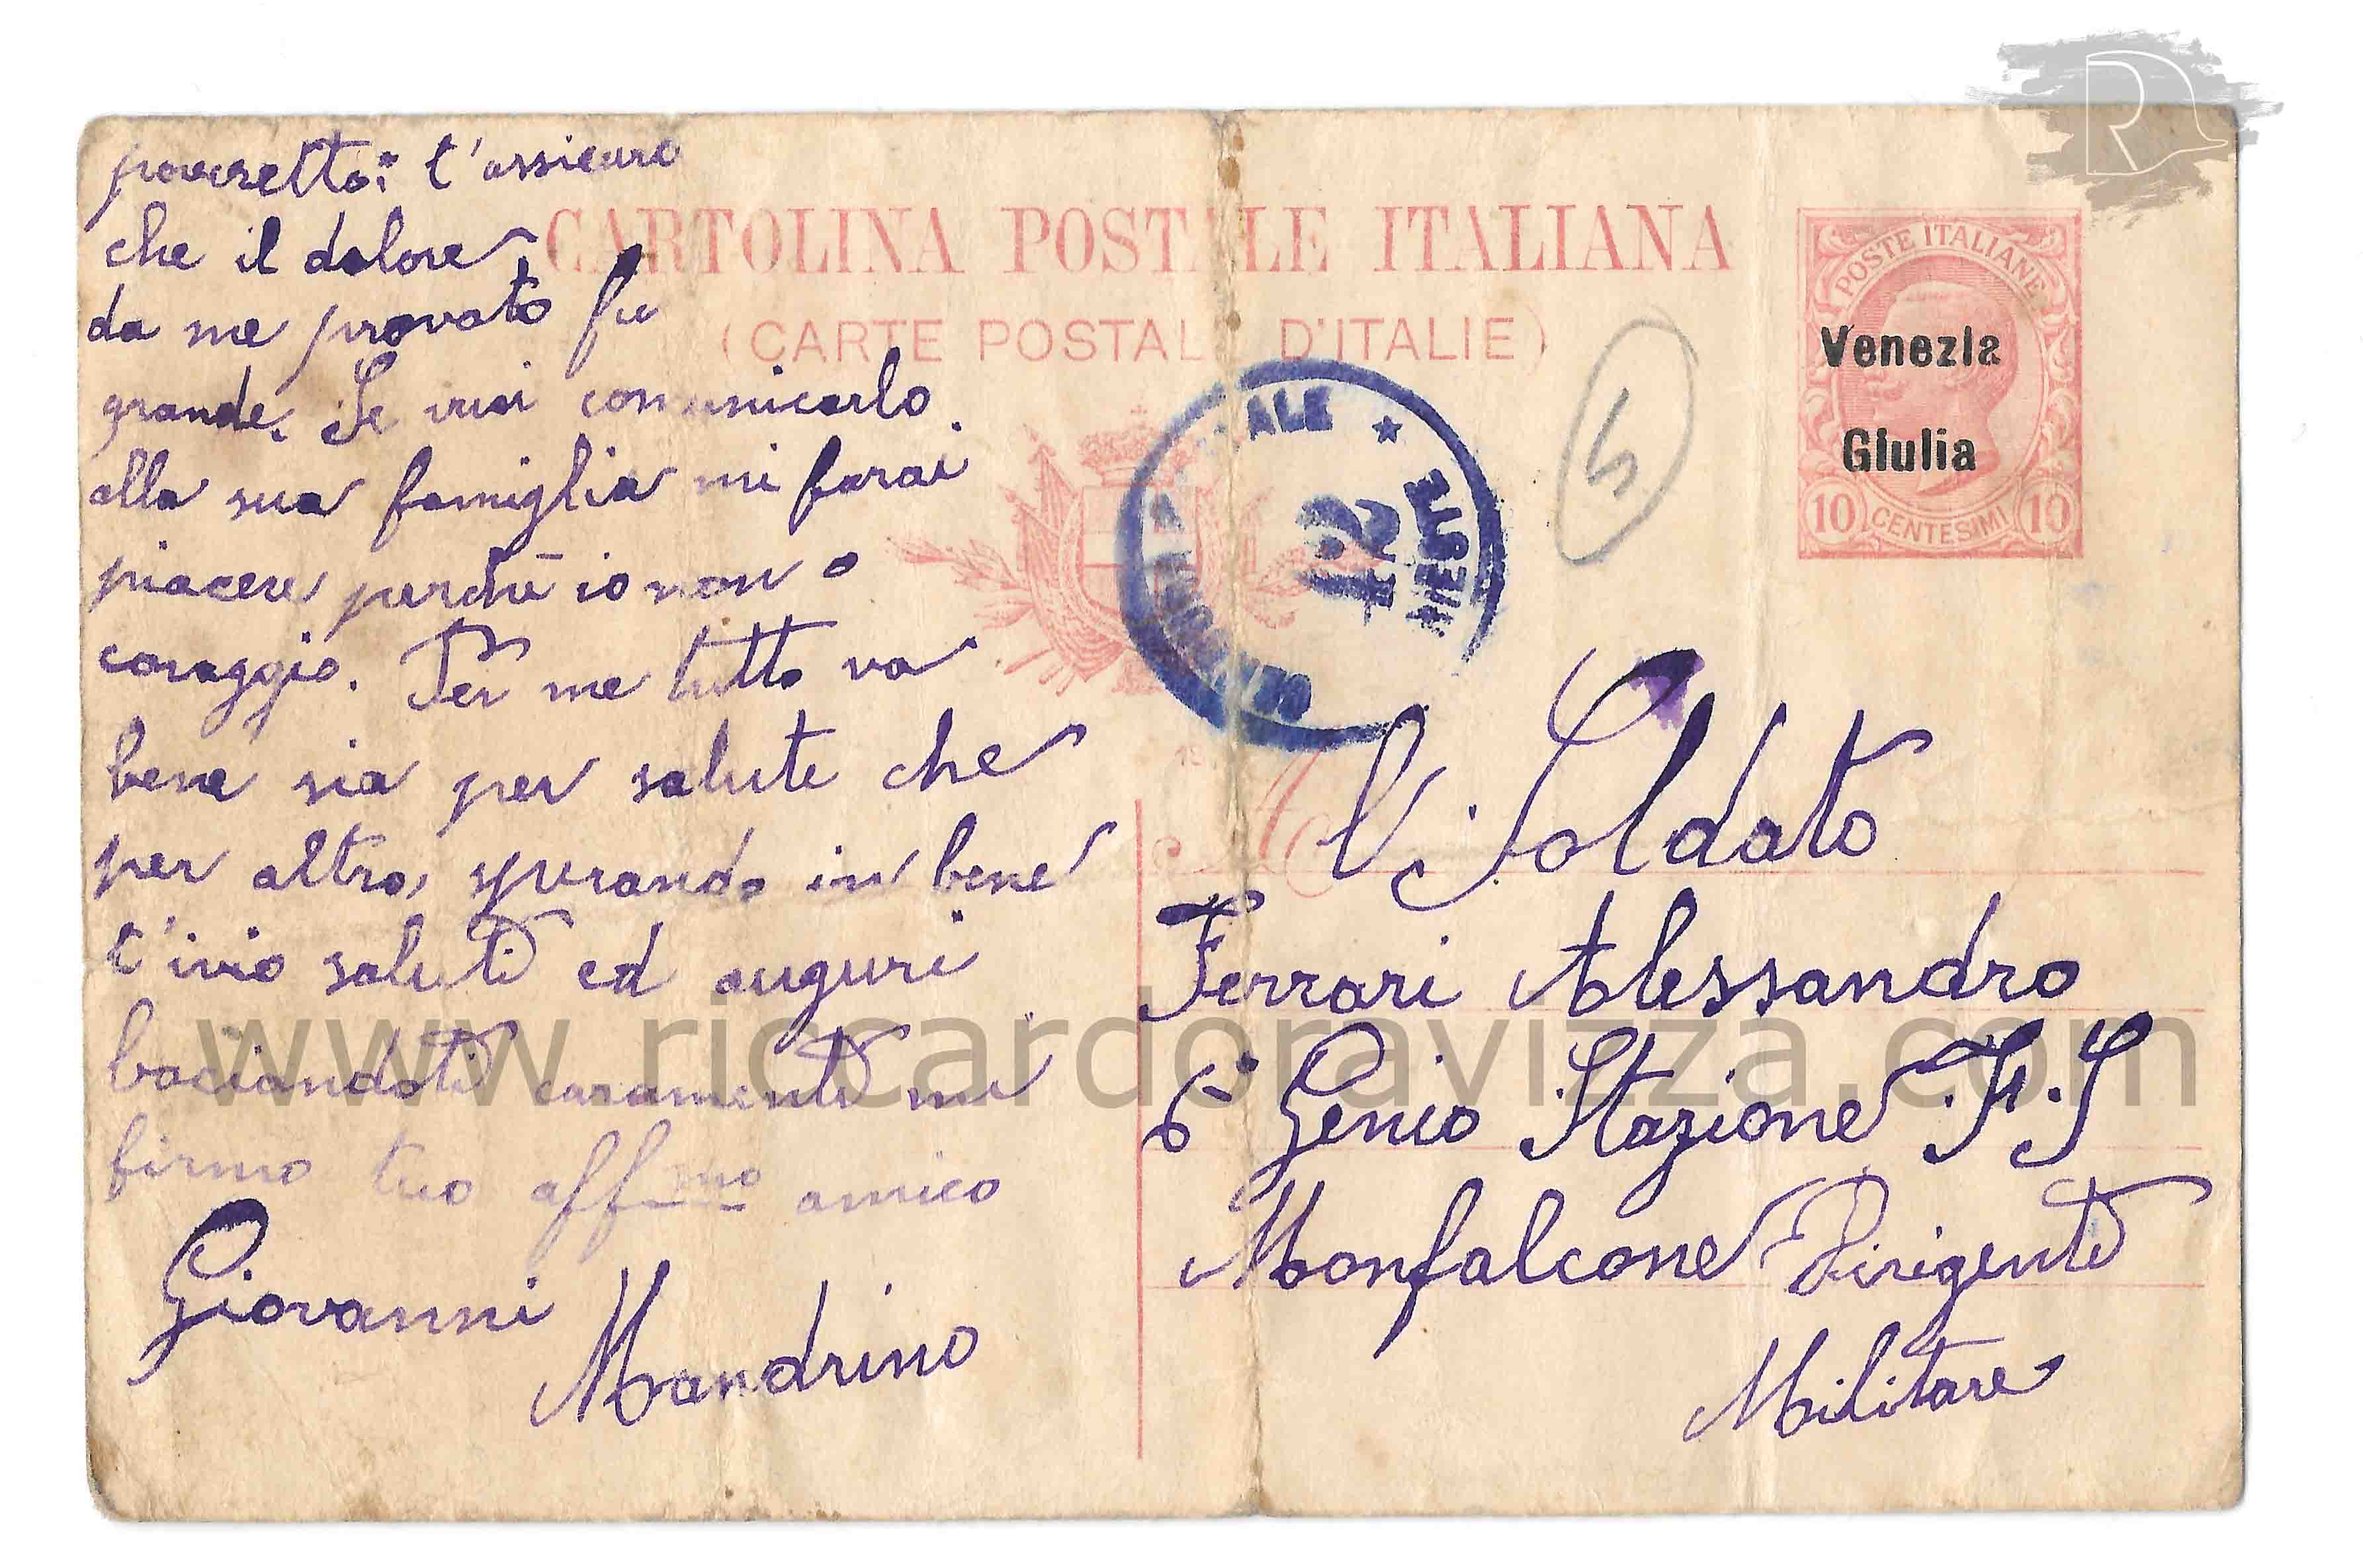 poveretto: t'assicuro
che il dolore
da me provato fu
grande. Se vuoi comunicarlo
alla sua famiglia mi farai
piacere perchè io non o
coraggio. Per me tutto va
bene sia per salute che
per altro, sperando in bene
t'ivio saluti ed auguri
baciandoti caramente mi
firmo tuo affmo amico
Giovanni
Mandrino
CARTOLINA POSTALE ITALIANA
(CARTE POSTALE D'ITALIE)
POSTE ITALIANE
Venezia
Giulia
10 CENTESIMI 10
5
TRIESTE
12
Al Soldato
Ferrari Alessandro
6° Genio Stazione F.S
Monfalcone Dirigente
Militare
www.riccardoravizza.com
R